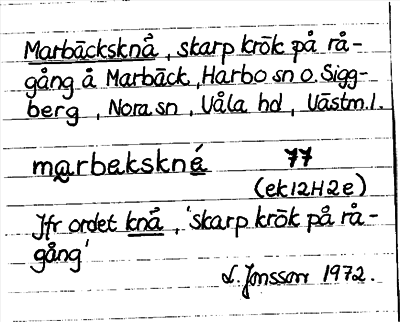 Marbäcksknå, skarp krök på rå-
gång å Marbäck, Harbo sn o. Sigg-
berg, Nora sn, Våla hd, Västm.l.
marbekskné 77
(ek 12H2e)
Jfr ordet knå, 'skarp krök på rå-
gång'
L. Jonsson 1972.